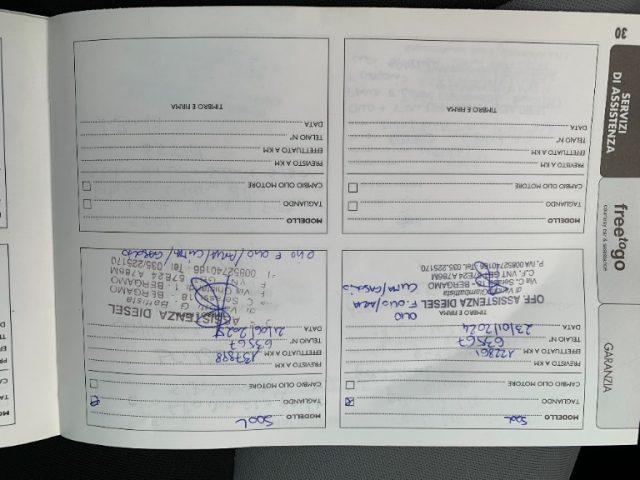 MODELLO 500L
TAGLIANDO
CAMBIO OLIO MOTORE
PREVISTO A KM
EFFETTUATO A KM 122861
TELAIO N° 635567
DATA 23/01/2024
TIMBRO E FIRMA
OLIO
OFF. ASSISTENZA DIESEL F. OLIO/ARIA
BERGAMO CLIMA/GASOLIO
P.IVA 00852740166 Tel. 035.225170
MODELLO 500L
TAGLIANDO
CAMBIO OLIO MOTORE
PREVISTO A KM
EFFETTUATO A KM 137898
TELAIO N° 635567
DATA
ASSISTENZA DIESEL
BERGAMO
00852740166 - Tel. 035/225170
OLIO F OLIO/ARIA/CLIMA/GASOLIO
MODELLO
TAGLIANDO
CAMBIO OLIO MOTORE
PREVISTO A KM
EFFETTUATO A KM
TELAIO N°
DATA
TIMBRO E FIRMA
MODELLO
TAGLIANDO
CAMBIO OLIO MOTORE
PREVISTO A KM
EFFETTUATO A KM
TELAIO N°
DATA
TIMBRO E FIRMA
GARANZIA
freetogo
SERVIZI
DI ASSISTENZA
30